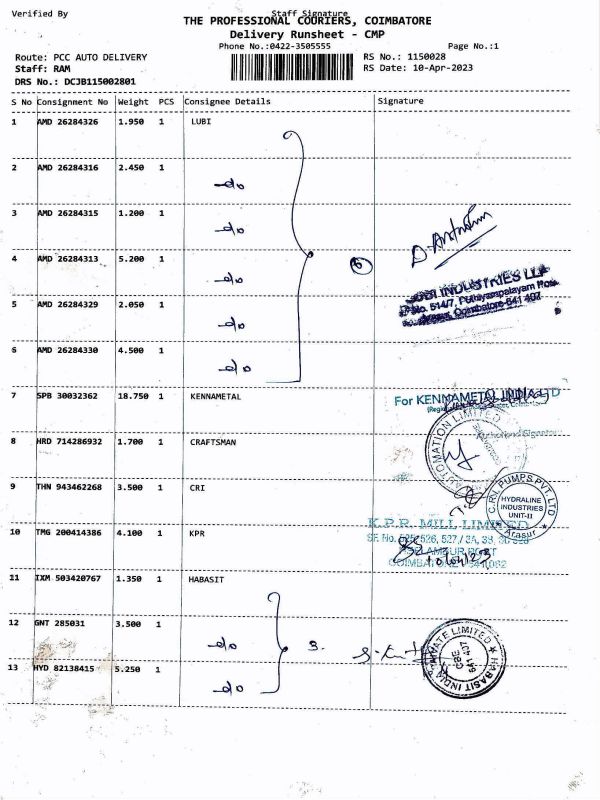 Verified By Staff Signature
THE PROFESSIONAL COURIERS, COIMBATORE
Delivery Runsheet - CMP
Phone No.:0422-3505555 Page No.:1
Route: PCC AUTO DELIVERY RS No.: 1150028
Staff: RAM RS Date: 10-Apr-2023
DRS No.: DCJB115002801
S No Consignment No Weight PCS Consignee Details Signature
1 AMD 26284326 1.950 1 LUBI
2 AMD 26284316 2.450 1 do
3 AMD 26284315 1.200 1 do
4 AMD 26284313 5.200 1 do 6
5 AMD 26284329 2.050 1 do
6 AMD 26284330 4.500 1 do
INDUSTRIES LLP
No. 514/7, Puthiyampalayam Road
Arasur, Coimbatore-641 407.
7 SPB 30032362 18.750 1 KENNAMETAL
For KENNAMETAL INDIA LTD
8 HRD 714286932 1.700 1 CRAFTSMAN
AUTOMATION LIMITED
9 THN 943462268 3.500 1 CRI
C.R.I. PUMPS PVT. LTD
HYDRALINE
INDUSTRIES
UNIT-II
Arasur
10 TMG 200414386 4.100 1 KPR
K.P.R. MILL LIMITED
SF. No. 525, 526, 527 / 3A, 3B,
11 IXM 503420767 1.350 1 HABASIT
12 GNT 285031 3.500 1 do 3.
13 HYD 82138415 5.250 1 do
HABASIT INDIA PRIVATE LIMITED
CBE
641 407